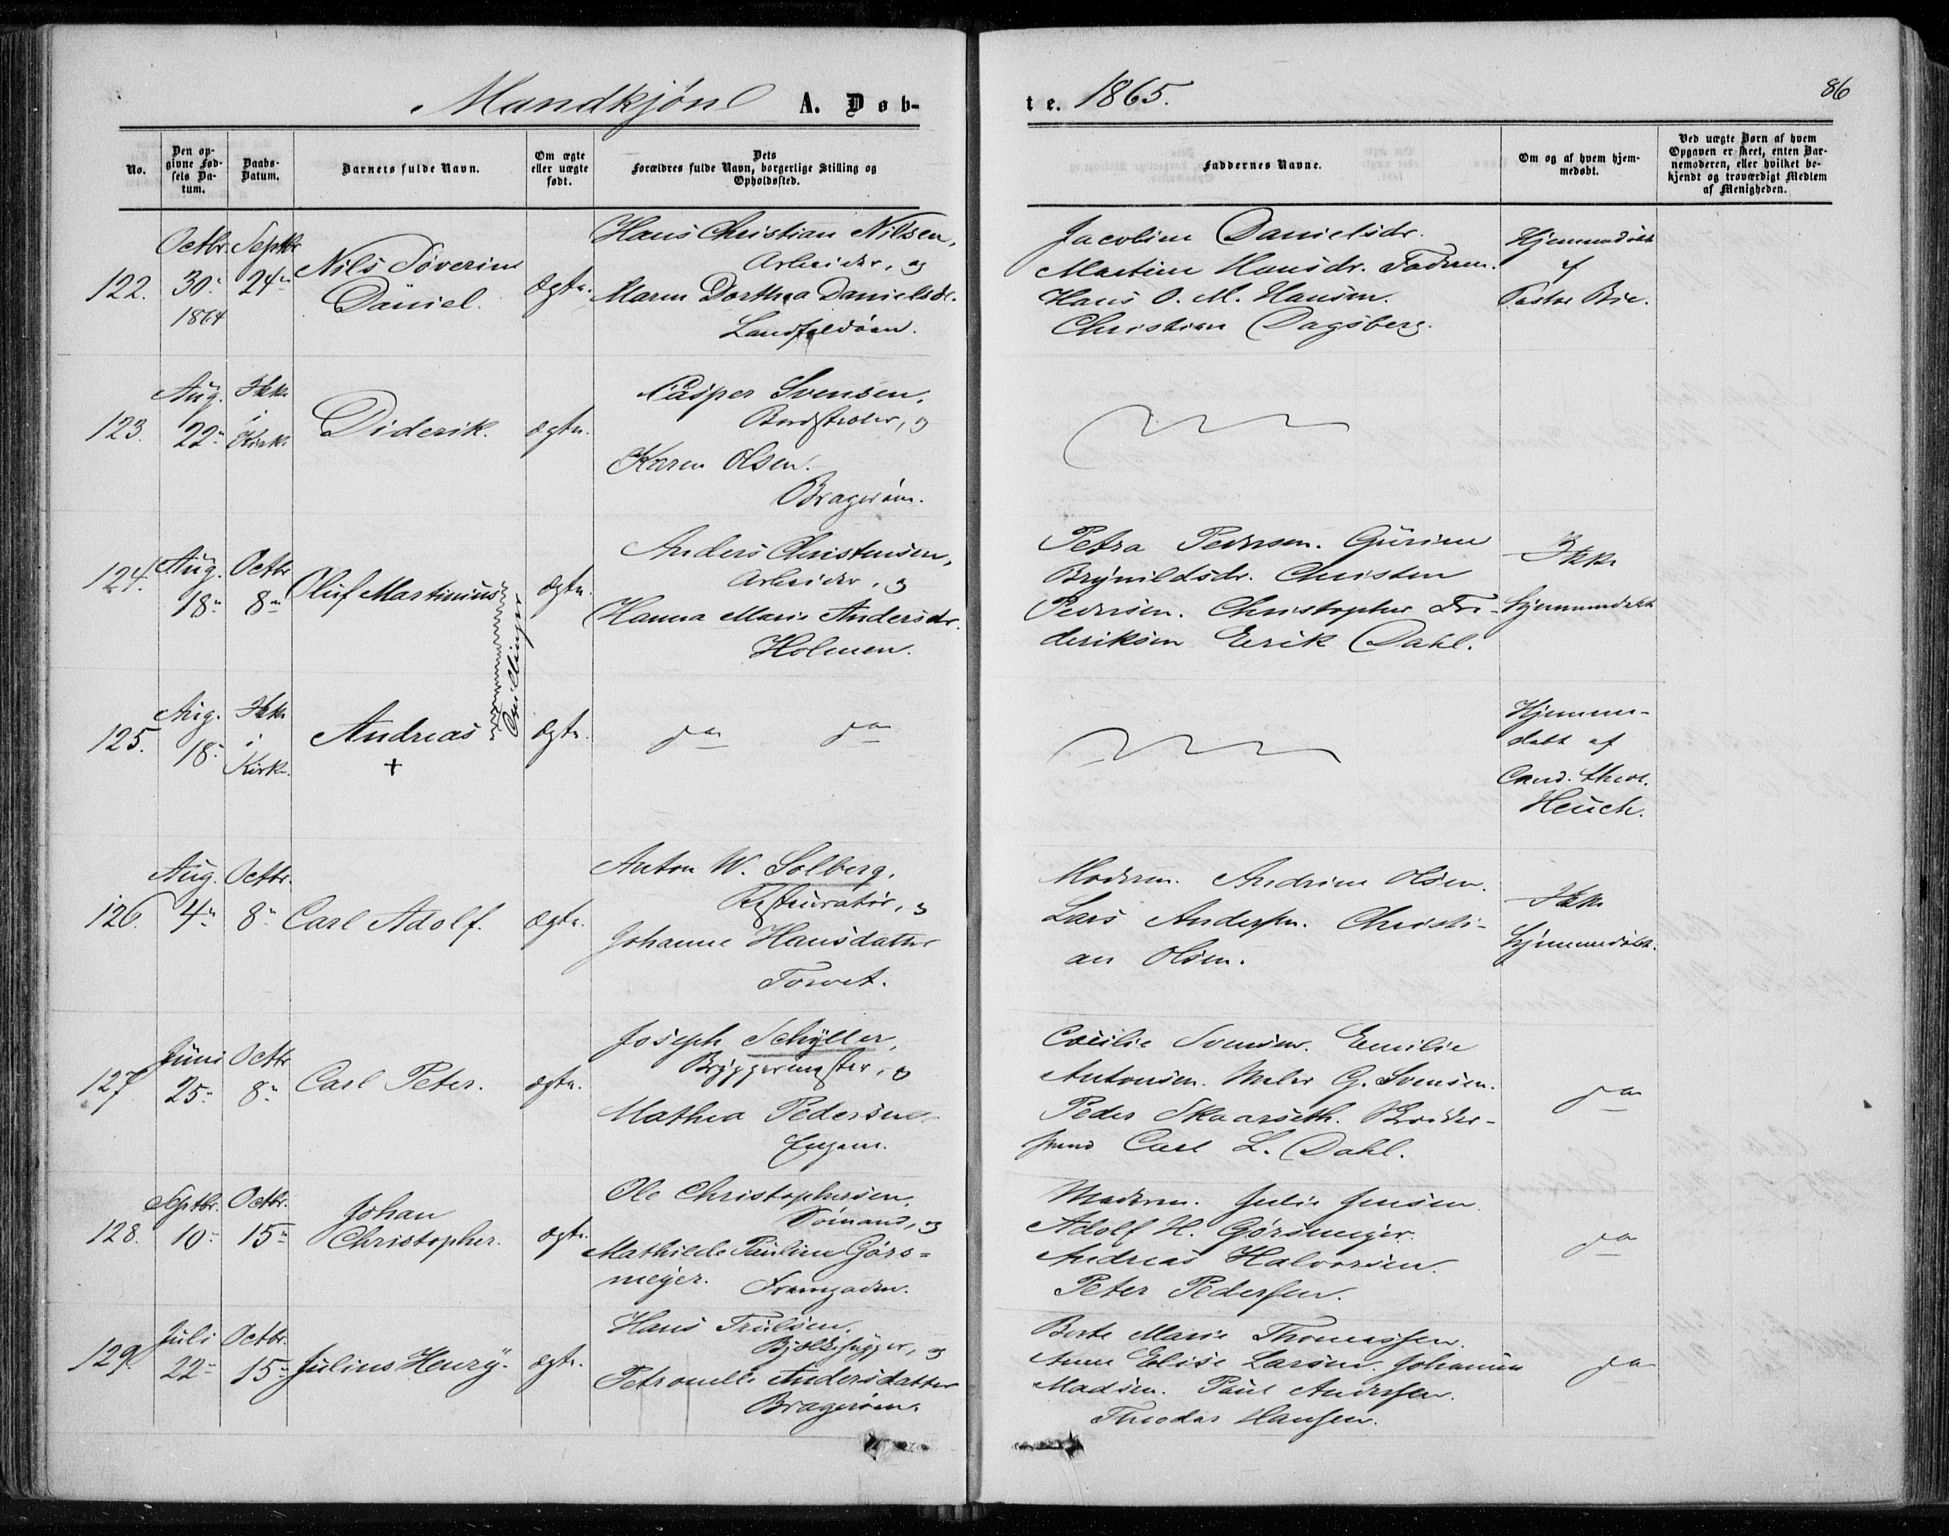 Mandkjøn A. Døb-
te. 1865.
86
No.
Den op-
givne Fød-
sels Da-
tum.
Daabs-
Datum.
Barnets fulde Navn.
Om ægte
eller uægte
født.
Dets
Forældres fulde Navn, borgerlige Stilling og
Opholdssted.
Faddernes Navne.
Om og af hvem hjem-
medøbt.
Ved uægte Børn af hvem
Opgaven er skeet, enten Bar-
nemoderen, eller hvilket be-
kjendt og troværdigt Medlem
af Menigheden.
122.
Octbr.
30
1864
Septbr
24
Nils Søverin
Daniel.
ægte.
Hans Christian Nilsen,
Arbeider, og
Maren Dorthea Danielsdr.
Landfaldøen.
Jacoline Danielsdr.
Martine Hansdr. Faderen.
Hans O. M. Hansen.
Christian Dagsberg.
Hjemmedøbt
af
Pastor Bie.
123.
Aug.
22
Ikke
i
Kirke.
Diderik.
ægte.
Casper Svensen,
og
Karen Olsen.
Bragerøen.
124.
Aug.
18
Octbr
8
Oluf Martinius
Tvillinger
ægte.
Anders Christensen,
Arbeider, og
Hanna Marie Andersdr.
Holmen.
Petra Pedersen. Gurine
Brynildsdr. Christen
Pedersen. Christopher Fre-
deriksen Eerik Dahl.
Ikke
hjemmedøbt
125.
Aug.
18
Ikke
i
Kirke.
Andreas
+
ægte.
do do
Hjemme-
døbt af
Cand. theol.
Heuch.
126.
Aug.
4
Octbr.
8
Carl Adolf.
ægte.
Anton W. Solberg,
Restauratør, og
Johanne Hansdatter
Torvet.
Moderen. Andrine Olsen.
Lars Andersen. Christi-
an Olsen.
Ikke
hjemmedøbt.
127
Juni
25
Octbr
8
Carl Peter.
ægte.
Joseph Schyller,
Bryggermester, og
Mathea Pedersen.
Engene.
Cecilie Svensen. Emilie
Antonsen. Maler G. Svensen.
Peder Skaarseth.
Carl L. Dahl.
do
128.
Septbr.
10
Octbr.
15
Johan
Christopher.
ægte.
Ole Christophersen,
Sømand, og
Mathilde Pauline Görs-
meyer.
Moderen. Julie Jensen.
Adolf H. Görsmeyer.
Andreas Halvorsen.
Peter Pedersen.
do
129.
Juli
22
Octbr.
15
Julius Henry.
ægte.
Hans Trulsen,
Bjelkehugger, og
Petronelle Andersdatter
Bragerøen.
Berte Marie Thomassen.
Anne Elise Larsen. Johanna
Madsen. Paul Andersen.
Theodor Hansen.
do